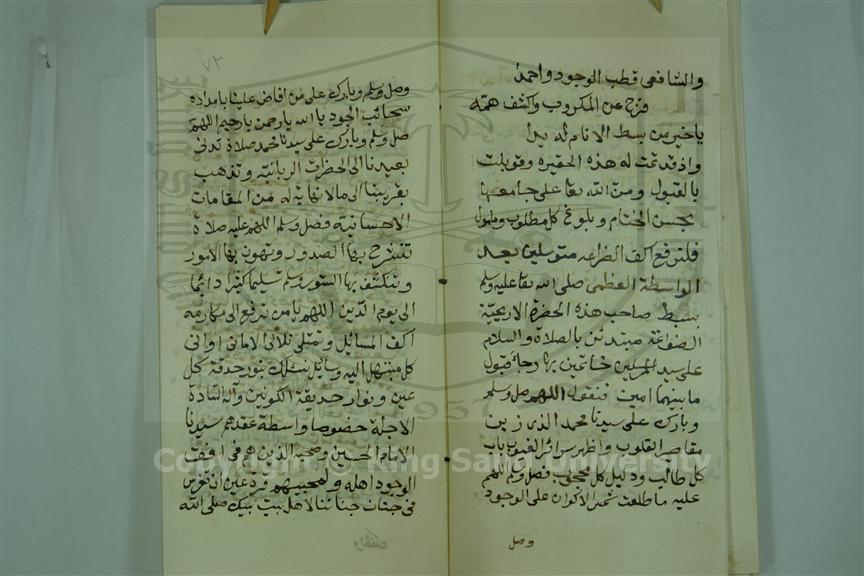 والشافعي قطب الوجود واحمدا
فرج عن المكروب واكشف همه
يا خير من بسط الانام له يدا
واذ قد تمت له هذه الحقيره وقوبلت
بالقبول ومن الله تعا على جامعها
بحسن الختام وبلوغ كل مطلوب ومأمول
فلنرفع اكف الضراعه متوسلين بعد
الواسطة العظمى صلى الله تعا عليه وسلم
بسبط صاحب هذه الحضرة الاريحية
مبتدئين بالصلاة والسلام
على سيد المرسلين خاتمين بها رجاء قبول
ما بينهما امين فنقول اللهم صل وسلم
وبارك على سيدنا محمد الذي زين
بقاصر القلوب واظهر سرائر الغيوب باب
كل طالب ودليل كل محجوب فصل وسلم اللهم
عليه ما طلعت شمس الاكوان على الوجود
وصل
٧٢
وصل وسلم وبارك على من افاض علينا بامداده
سحائب الجود يا الله يا رحمن يا رحيم اللهم
صل وسلم وبارك على سيدنا محمد صلاة تدني
بعيدنا الى الحضرات الربانية وتذهب
بقريبنا الى ما لا نهاية له من المقامات
الاحسانية فصل وسلم اللهم عليه صلاة
تنشرح بها الصدور وتهون بها الامور
وتنكشف بها الستور وسلم تسليما كثيرا دائما
الى يوم الدين اللهم يا من ترفع الى مكارمه
اكف المسائل وتمتلى بلالئ الاماني اواني
كل مبتهل اليه وسائل نسئلك بنور حدقة كل
عين ونوار حديقة الكونين وآله السادة
الاجلة خصوصا واسطة عقدهم سيدنا
الامام الحسين وصحبه الذين هم في افق
الوجود اهله ولمحبيهم قرة عين ان تغرس
في جنات جناننا لاهل بيت نبيك صلى الله
Copyright © King Saud University
1957